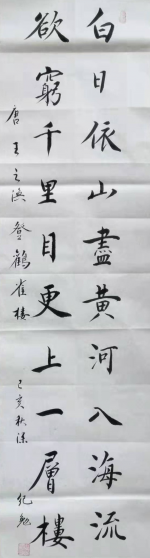 白日依山盡黄河入海流
欲窮千里目更上一層樓
唐王之渙登鹳雀樓
己亥秋深